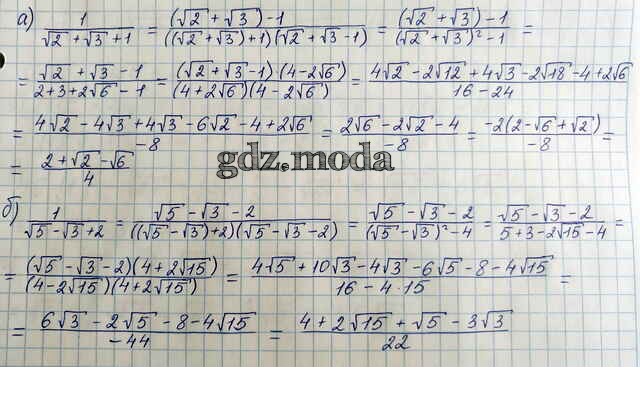 а) 1/(√2 + √3 + 1) = ((√2 + √3) - 1)/(((√2 + √3) + 1)(√2 + √3 - 1)) = ((√2 + √3) - 1)/((√2 + √3)² - 1) =
= (√2 + √3 - 1)/(2 + 3 + 2√6 - 1) = ((√2 + √3 - 1)(4 - 2√6))/((4 + 2√6)(4 - 2√6)) = (4√2 - 2√12 + 4√3 - 2√18 - 4 + 2√6)/(16 - 24)
= (4√2 - 4√3 + 4√3 - 6√2 - 4 + 2√6)/(-8) = (2√6 - 2√2 - 4)/(-8) = (-2(2 - √6 + √2))/(-8) =
= (2 + √2 - √6)/4
gdz.moda
б) 1/(√5 - √3 + 2) = (√5 - √3 - 2)/(((√5 - √3) + 2)(√5 - √3 - 2)) = (√5 - √3 - 2)/((√5 - √3)² - 4) = (√5 - √3 - 2)/(5 + 3 - 2√15 - 4) =
= ((√5 - √3 - 2)(4 + 2√15))/((4 - 2√15)(4 + 2√15)) = (4√5 + 10√3 - 4√3 - 6√5 - 8 - 4√15)/(16 - 4·15) =
= (6√3 - 2√5 - 8 - 4√15)/(-44) = (4 + 2√15 + √5 - 3√3)/22